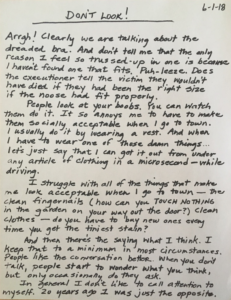 DON'T LOOK!
6-1-18
Arrgh! Clearly we are talking about the
dreaded bra. And don't tell me that the only
reason I feel so trussed-up in one is because
I haven't found one that fits. Puh-leeze. Does
the executioner tell the victim they wouldn't
have died if they had been the right size
if the noose had fit properly.
People look at your boobs. You can watch
them do it. It so annoys me to have to make
them socially acceptable when I go to town.
I usually do it by wearing a vest. And when
I have to wear one of those damn things...
let's just say that I can get it out from under
any article of clothing in a microsecond - while
driving.
I struggle with all of the things that make
me look acceptable when I go to town - the
clean fingernails (how can you TOUCH NOTHING
in the garden on your way out the door?) Clean
clothes - do you have to buy new ones every
time you get the tiniest stain?
And then there's the saying what I think. I
keep that to a minimum in most circumstances.
People like the conversation better. When you don't
talk, people start to wonder what you think,
but only occasionally do they ask.
In general I don't like to call attention to
myself. 20 years ago I was just the opposite.